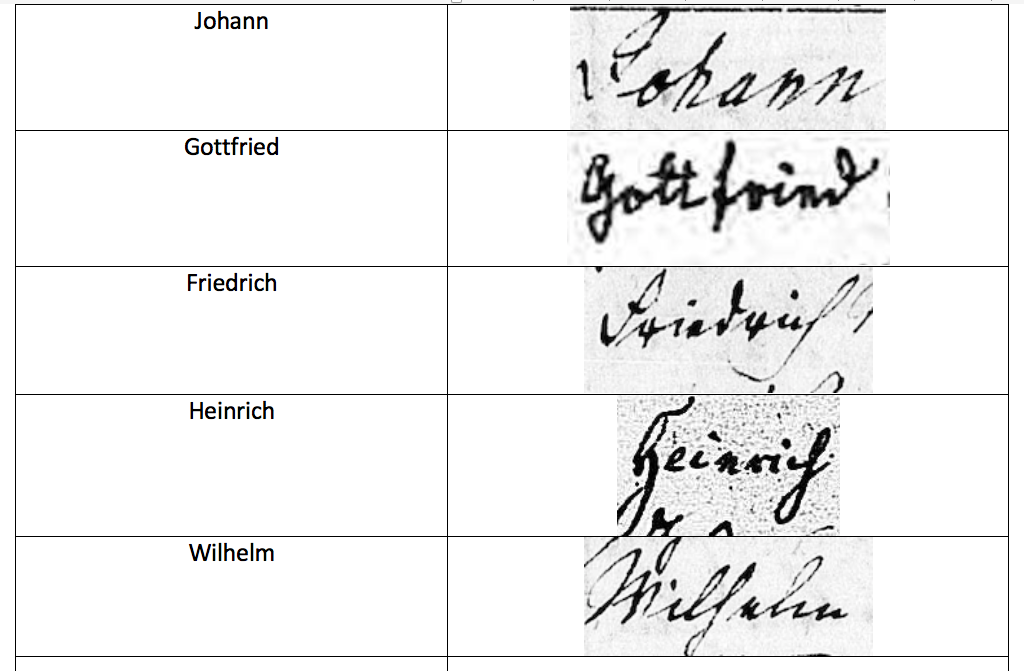 Johann Johann
Gottfried Gottfried
Friedrich Friedrich
Heinrich Heinrich
Wilhelm Wilhelm